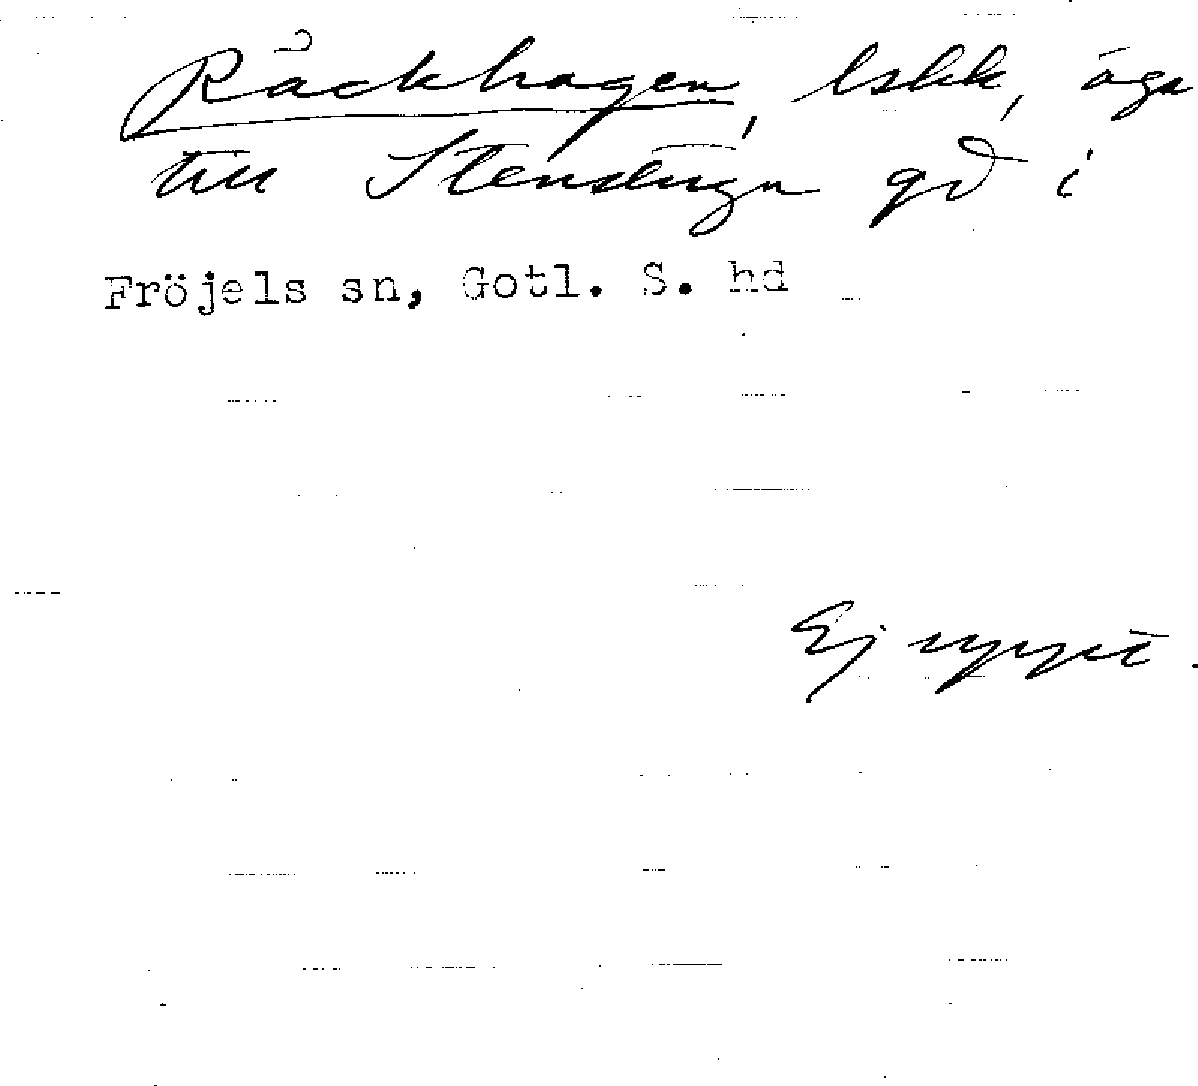 Råckhagen, äga
till Stenstugu gd i
Fröjels sn, Gotl. S. hd
Ej uppt.